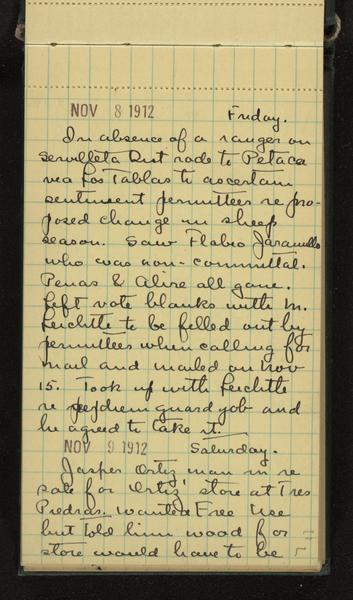 NOV 8 1912 Friday.
In absence of a ranger on
Servilleta Dist rode to Petaca
via Los Tablas to ascertain
sentiment permittees re pro-
posed change in sheep
season. Saw Flabio Jaramillo
who was non-committal.
Penas & Alire all gone.
Left vote blanks with M.
to be filled out by
permittees when calling for
mail and mailed on Nov
15. Took up with
re per diem guard job and
he agreed to take it.
NOV 9 1912 Saturday.
Jasper Ortiz man in re
sale for 'Ortiz' store at Tres
Piedras. Wanted Free Use
but told him wood for
store would have to be